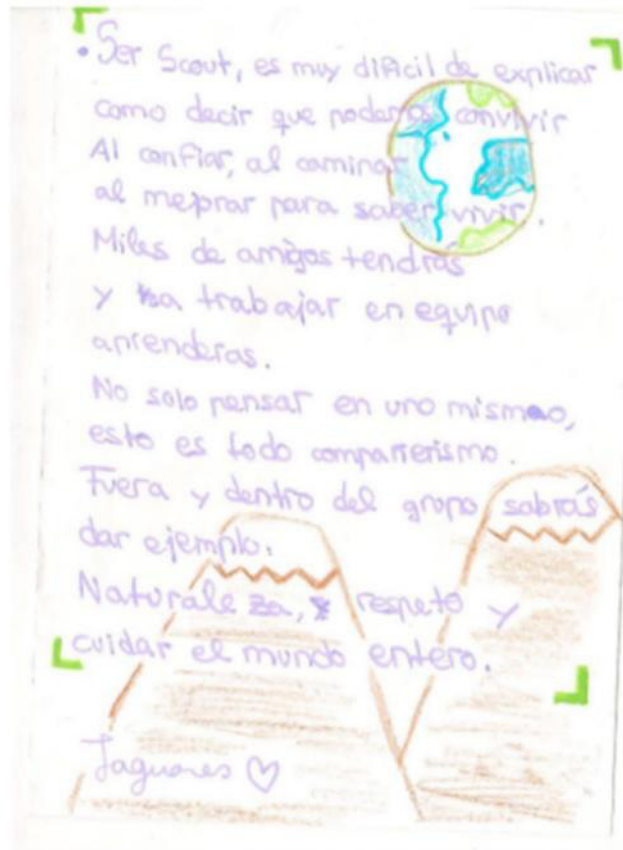 • Ser Scout, es muy dificil de explicar
como decir que podamos convivir
Al confiar, al caminar
al mejorar para saber vivir.
Miles de amigos tendrás
y a trabajar en equipo
aprenderas.
No solo pensar en uno mismo,
esto es todo compañerismo.
Fuera y dentro del grupo sabrás
dar ejemplo.
Naturaleza, respeto y
cuidar el mundo entero.
Jaguares ♡